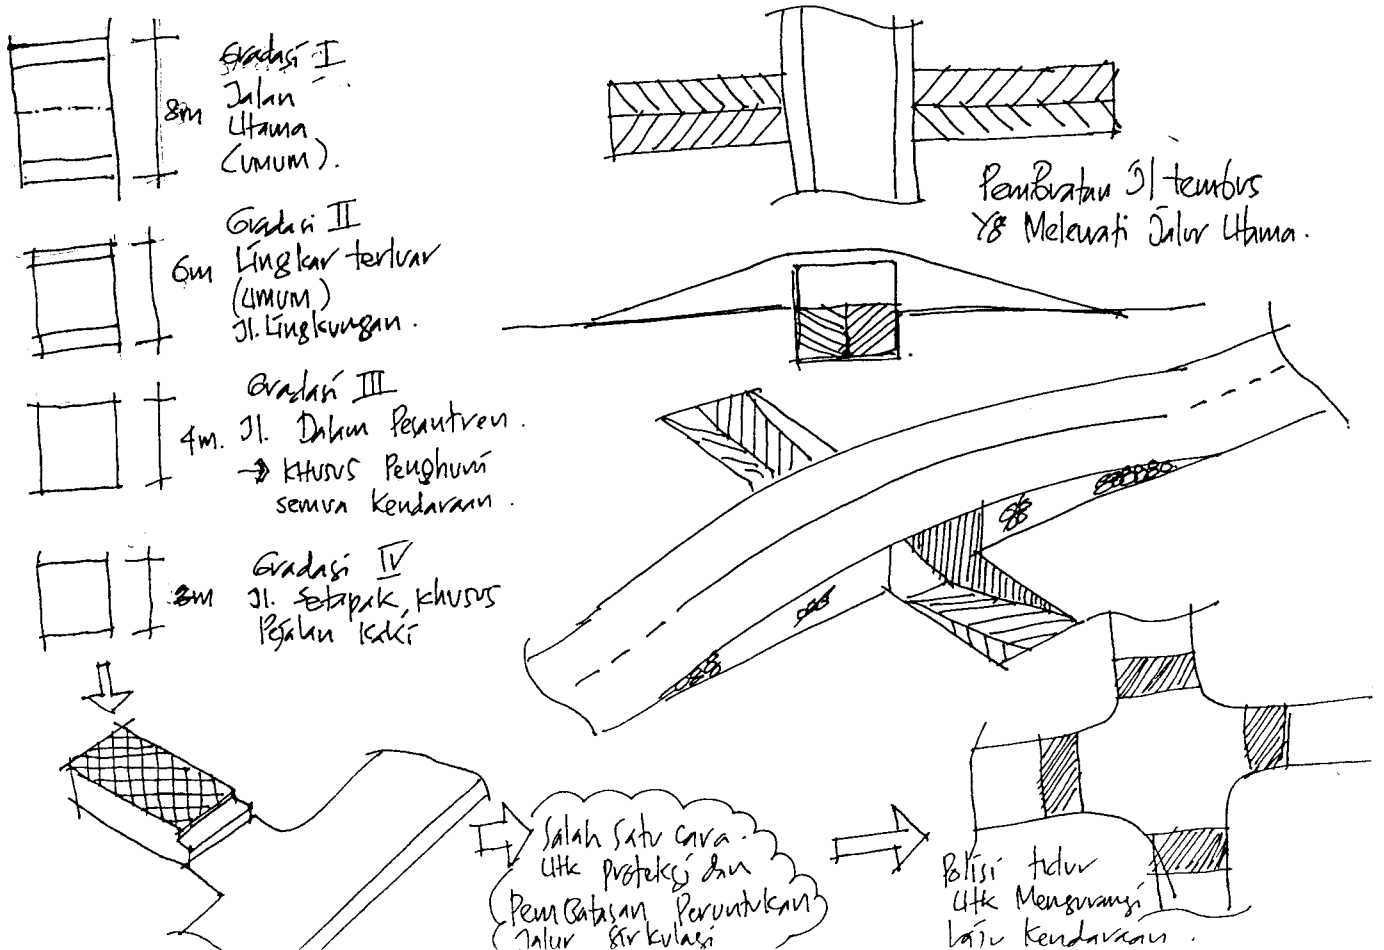 8m
Gradasi I
Jalan
Utama
(UMUM).
6m
Gradasi II
Lingkar terluar
(UMUM)
Jl. Lingkungan.
4m.
Gradasi III
Jl. Dalam Pesantren.
→ KHUSUS Penghuni
semua Kendaraan.
Gradasi IV
Jl. Setapak, Khusus
Pejalan Kaki
Pembuatan Jl tembus
Yg Melewati Jalur Utama.
Salah Satu Cara.
Utk Proteksi dan
Pembatasan Peruntukan
Jalur Sirkulasi
Polisi tidur
Utk Mengurangi
Laju Kendaraan.